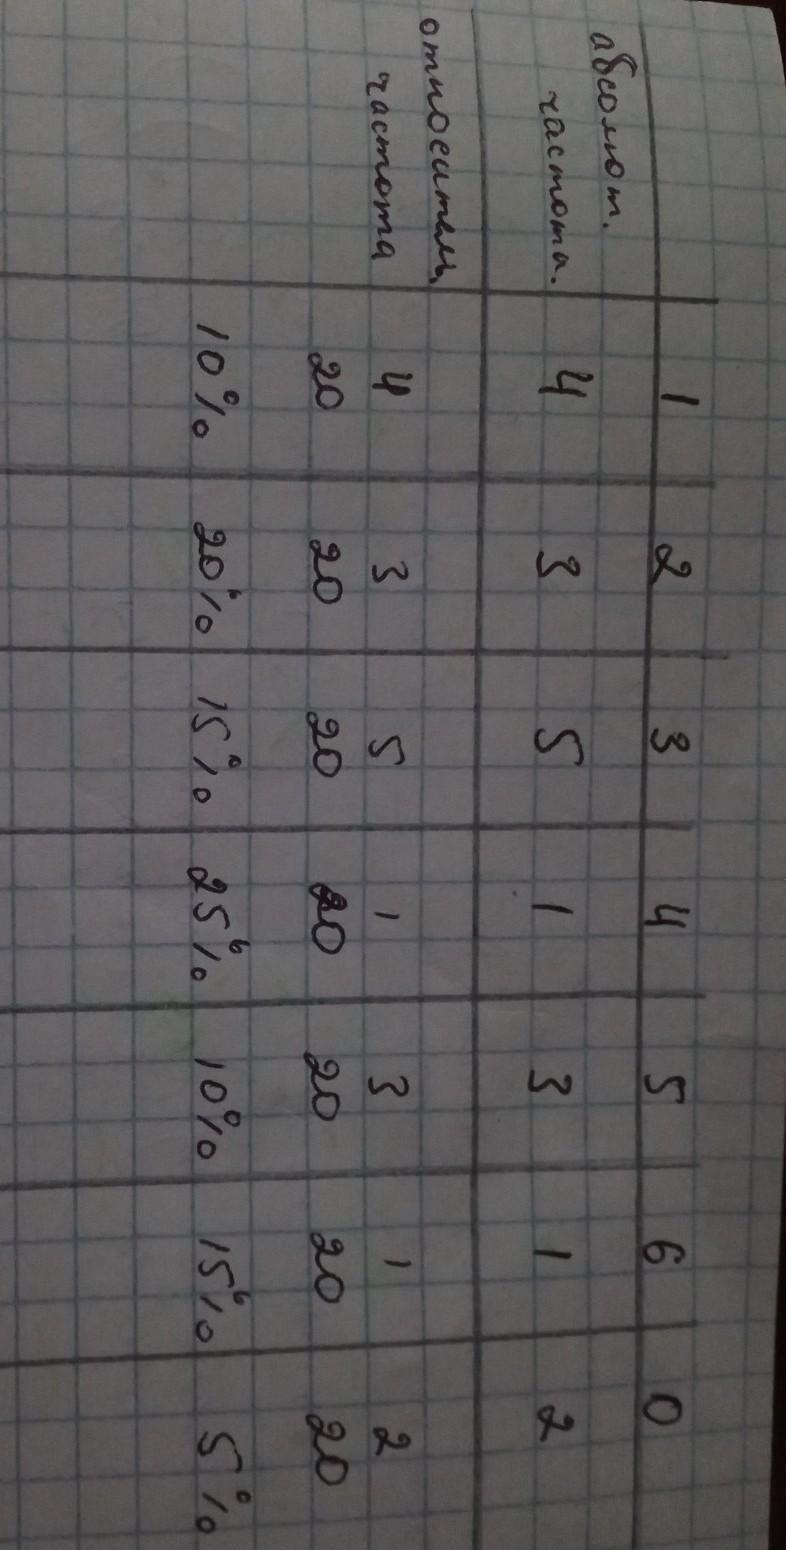 1 2 3 4 5 6 0
абсолют. частота. 4 3 5 1 3 1 2
относительн частота 4 3 5 1 3 1 2
20 20 20 20 20 20 20
10% 20% 15% 25% 10% 15% 5%